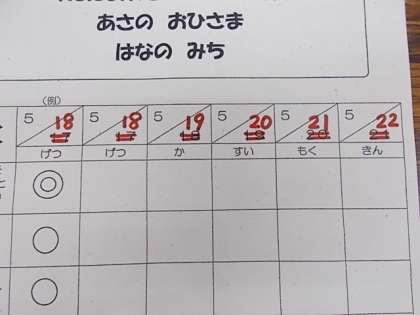 あさの おひさま
はなの みち
(例)
5/18 5/18 5/19 5/20 5/21 5/22
17 17 18 19 20 21
げつ げつ か すい もく きん